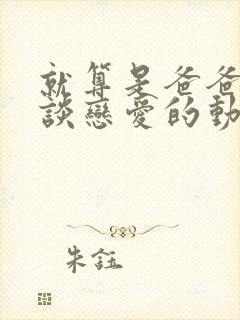 就算是爸爸
談戀愛的動
朱鈺